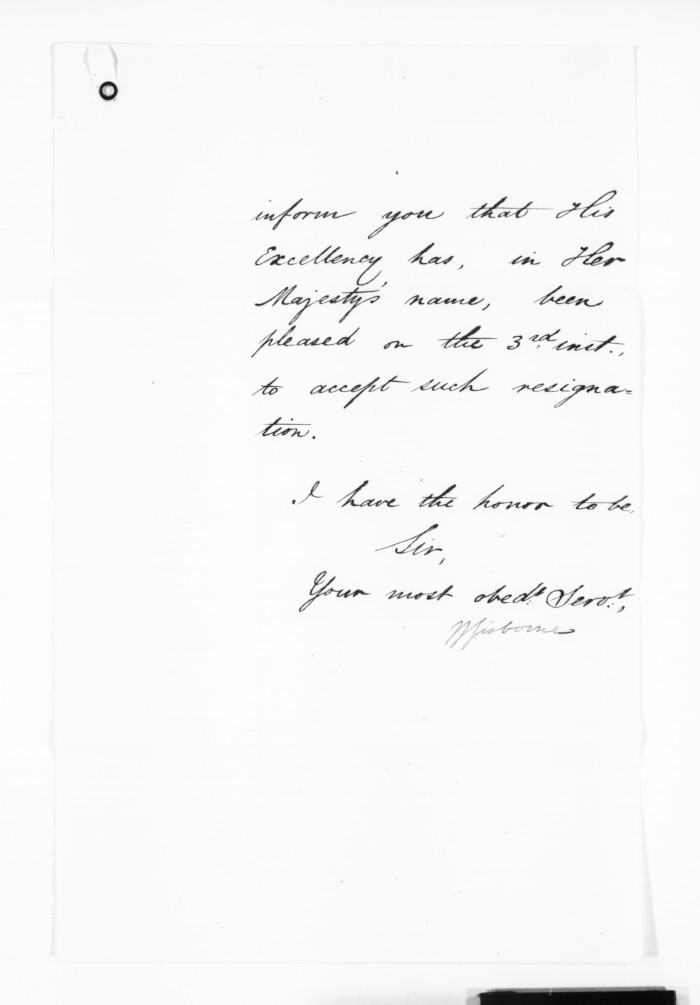 inform you that His
Excellency has, in Her
Majesty's name, been
pleased on the 3rd. inst.,
to accept such resigna=
tion.
I have the honor to be,
Sir,
Your most obedt. Servt.,
WGisborne